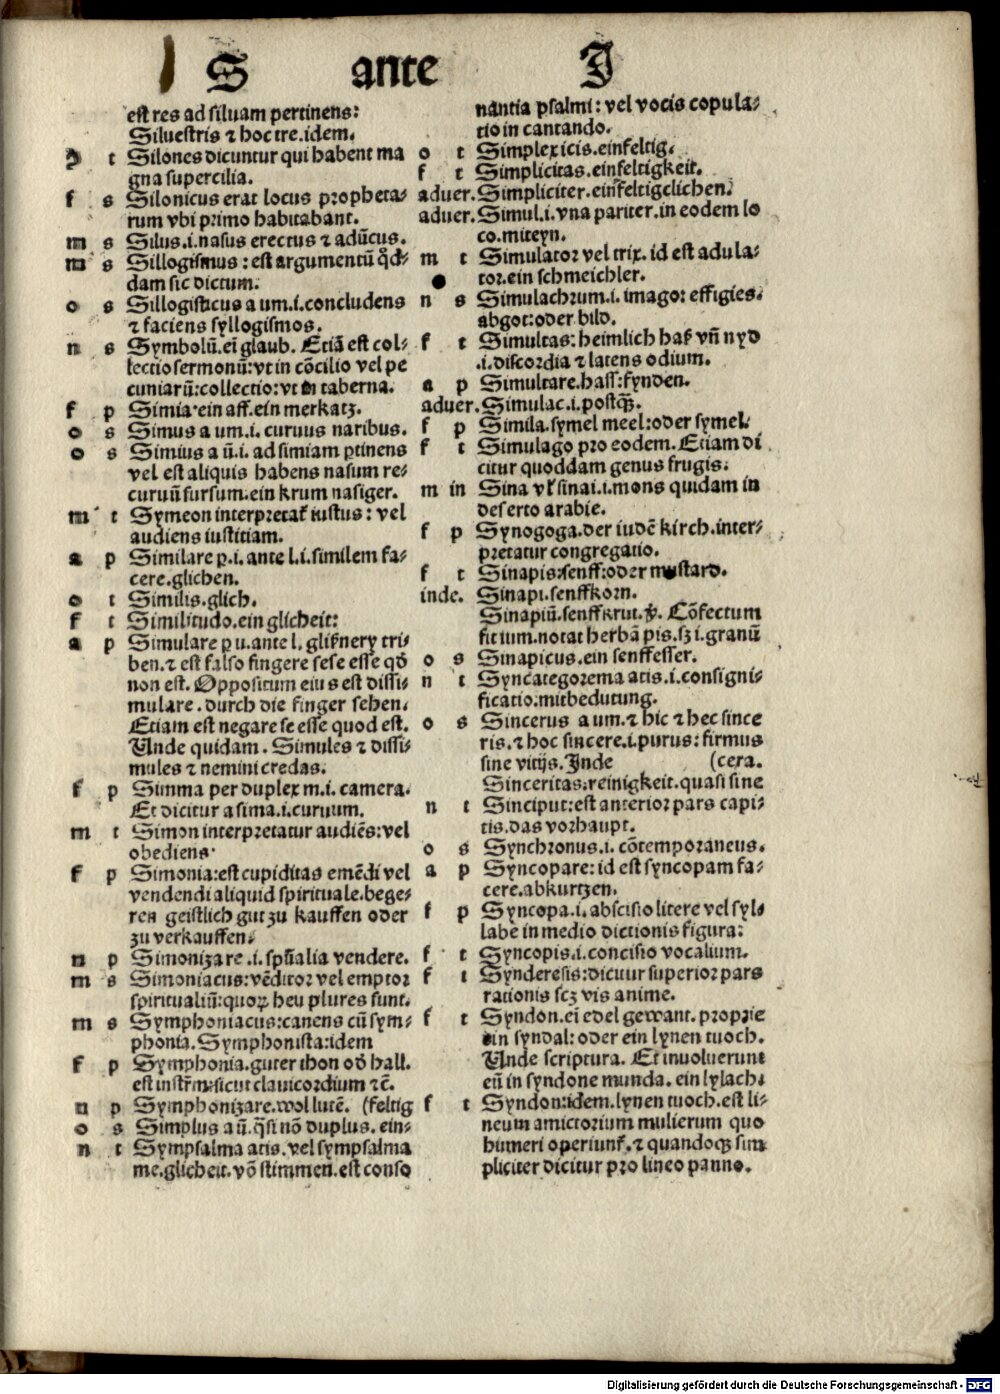 S ante I
est res ad siluam pertinens:
Siluestris ⁊ hoc tre.idem.
t Silones dicuntur qui habent ma
gna supercilia.
f s Silonicus erat locus propheta⸗
rum vbi primo habitabant.
m s Silus.i.nasus erectus ⁊ adūcus.
m s Sillogismus: est argumentū qd⸗
dam sic dictum.
o s Sillogisticus a um.i.concludens
⁊ faciens syllogismos.
n s Symbolū.ei glaub. Etiā est col⸗
lectio sermonū:vt in cōcilio vel pe
cuniarū:collectio:vt in taberna.
f p Simia.ein aff.ein merkatz.
o s Simus a um.i. curuus naribus.
o s Simius a ū.i. ad simiam ꝑtinens
vel est aliquis habens nasum re⸗
curuū sursum.ein krum nasiger.
m t Symeon interpretat᷑ iustus: vel
audiens iustitiam.
a p Similare ꝑ.i. ante l.i.similem fa⸗
cere.glichen.
o t Similis.glich.
f t Similitudo.ein glicheit:
a p Simulare ꝑ u.ante l. glißnery tri⸗
ben.⁊ est falso fingere sese esse qd̄
non est. Oppositum eius est dissi⸗
mulare. durch die finger sehen.
Etiam est negare se esse quod est.
Unde quidam. Simules ⁊ dissi⸗
mules ⁊ nemini credas.
f p Simma per duplex m.i. camera.
Et dicitur a sima.i.curuum.
m t Simon interpretatur audiēs:vel
obediens.
f p Simonia:est cupiditas emēdi vel
vendendi aliquid spirituale.bege⸗
ren geistlich gut zu kauffen oder
zu verkauffen.
n p Simonizare .i. spūalia vendere.
m s Simoniacus:vēditor vel emptor
spiritualiū:quoꝝ heu plures sunt.
m s Symphoniacus:canens cū sym⸗
phonia. Symphonista:idem
f p Symphonia.guter thon od̄ hall.
est instr̄m.sicut clauicordium ⁊c̄.
n p Symphonizare.wol lutē. (feltig
o s Simplus a ū.q̄si nō duplus. ein⸗
n t Sympsalma atis.vel sympsalma
me.glicheit.vō stimmen.est conso
nantia psalmi: vel vocis copula⸗
tio in cantando.
o t Simplex icis.einfeltig.
f t Simplicitas.einfeltigkeit.
aduer. Simpliciter.einfeltigclichen.
aduer. Simul.i.vna pariter.in eodem lo
co.miteyn.
m t Simulator vel trix. id est adula⸗
tor.ein schmeichler.
n s Simulachrum.i. imago: effigies.
abgot:oder bild.
f t Simultas: heimlich haß vñ nyd
.i.discordia ⁊ latens odium.
a p Simultare.hass:fynden.
aduer. Simulac.i.postꝗ̄.
f p Simila.symel meel:oder symel.
f t Simulago pro eodem. Etiam di
citur quoddam genus frugis.
m in Sina vł sinai.i.mons quidam in
deserto arabie.
f p Synogoga.der iudē kirch.inter⸗
pretatur congregatio.
f t Sinapis:senff:oder mostard.
inde. Sinapi.senffkorn.
Sinapiū.senffkrut. Cōfectum
fit ium.notat herbā pis.sꝫ i.granū
o s Sinapicus.ein senffesser.
n t Syncategorema atis.i.consigni⸗
ficatio.mitbedutung.
o s Sincerus a um.⁊ hic ⁊ hec since
ris.⁊ hoc sincere.i.purus: firmus
sine vitijs. Inde (cera.
Sinceritas:reinigkeit.quasi sine
n t Sinciput:est anterior pars capi⸗
tis.das vorhaupt.
o s Synchronus.i. cōtemporaneus.
a p Syncopare: id est syncopam fa⸗
cere.abkurtzen.
f p Syncopa.i.abscisio litere vel syl⸗
labe in medio dictionis figura:
f t Syncopis.i.concisio vocalium.
f t Synderesis:dicitur superior pars
rationis scꝫ vis anime.
f t Syndon.ei edel gewant. proprie
ein syndal: oder ein lynen tuoch.
Unde scriptura. Et inuoluerunt
eū in syndone munda. ein lylach.
f t Syndon:idem.lynen tuoch.est li⸗
neum amictorium mulierum quo
humeri operiunt᷑.⁊ quandoqꝫ sim
pliciter dicitur pro lineo panno.
Digitalisierung gefördert durch die Deutsche Forschungsgemeinschaft - DFG